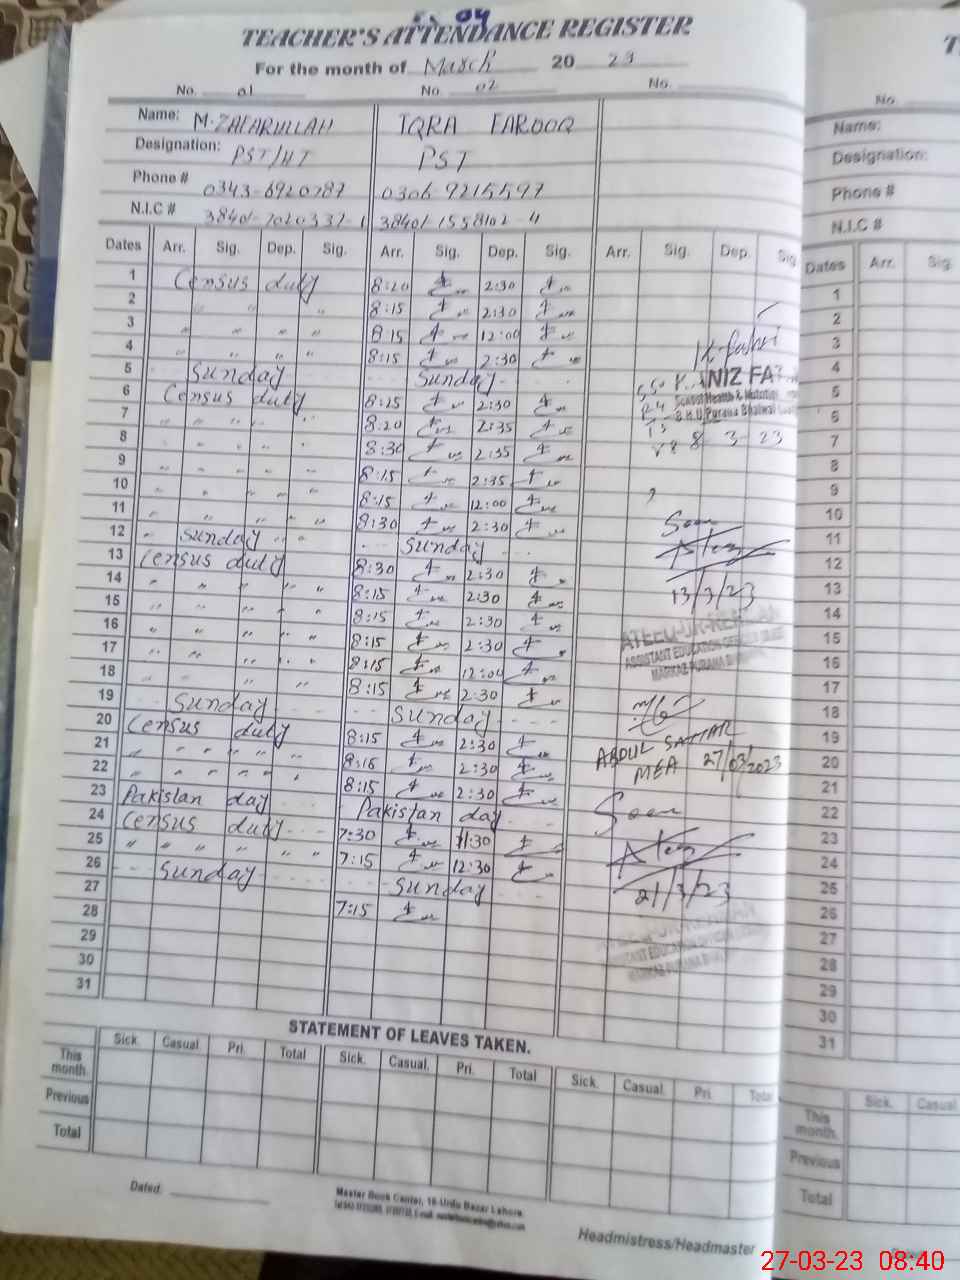 04
TEACHER'S ATTENDANCE REGISTER
For the month of March 20 23
No. 01 No. 02 No.
Name: M. ZAFARULLAH IQRA FAROOQ
Designation: PST/HT PST
Phone # 0343-6920787 0306-9215597
N.I.C # 38401-1558102-4
Dates Arr. Sig. Dep. Sig. Arr. Sig. Dep. Sig. Arr. Sig. Dep. Sig
1 Census duty 8:20 2:30
2 " " " 8:15 2:30
3 " " " " 8:15 12:00
4 " " " " 8:15 2:30
5 Sunday Sunday
6 Census duty 8:15 2:30
7 " " " " 8:20 2:35
8 " " " " 8:30 2:35
9 " " " " 8:15 2:35
10 " " " " 8:15 12:00
11 " " " " 8:30 2:30
12 Sunday Sunday
13 Census duty 8:30 2:30
14 " " " " 8:15 2:30
15 " " " " 8:15 2:30
16 " " " " 8:15 2:30
17 " " " " 8:15 12:00
18 " " " " 8:15 2:30
19 Sunday Sunday
20 Census duty 8:15 2:30
21 " " " " " 8:16 2:30
22 " " " " " 8:15 2:30
23 Pakistan day Pakistan day
24 Census duty 7:30 11:30
25 " " " " " " 7:15 12:30
26 Sunday Sunday
27 7:15
28
29
30
31
NIZ FA
School Health & Nutrition
B.H.U Purana Bhalwal
8 3 23
Seen
13/3/23
ATEEQ-UR-REHMAN
ASSISTANT EDUCATION OFFICER
MARKAZ PURANA
ABDUL SATTAR
MEA 27/03/2023
Seen
21/3/23
ASSISTANT EDUCATION OFFICER
MARKAZ PURANA
STATEMENT OF LEAVES TAKEN.
Sick. Casual. Pri. Total Sick. Casual. Pri. Total Sick. Casual. Pri. Total
This month.
Previous
Total
Dated:
Master Book Center, 16-Urdu Bazar Lahore.
Headmistress/Headmaster
No.
Name:
Designation:
Phone #
N.I.C #
Dates Arr. Sig.
1
2
3
4
5
6
7
8
9
10
11
12
13
14
15
16
17
18
19
20
21
22
23
24
25
26
27
28
29
30
31
Sick. Casual
This month.
Previous
Total
27-03-23 08:40